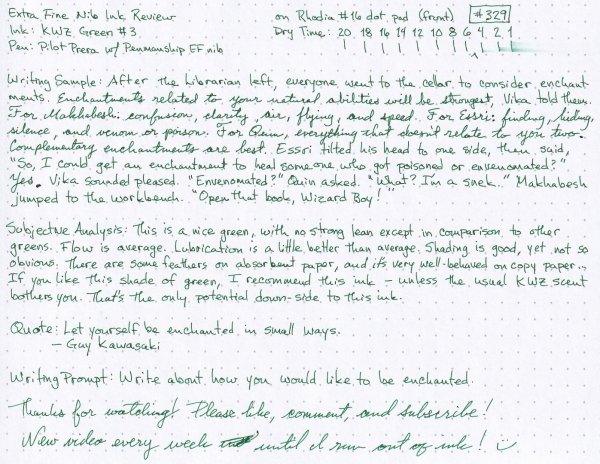 Extra Fine Nib Ink Review
on Rhodia #16 dot pad (front)
#329
Ink: KWZ Green #3
Dry Time: 20 18 16 14 12 10 8 6 4 2 1
Pen: Pilot Prera w/ Penmanship EF nib
Writing Sample: After the librarian left, everyone went to the cellar to consider enchant
ments. Enchantments related to your natural abilities will be strongest, Vika told them.
For Makhabesh: confusion, clarity, air, flying, and speed. For Essri: finding, hiding,
silence, and venom or poison. For Quin, everything that doesn't relate to you two.
Complementary enchantments are best. Essri tilted his head to one side, then said,
"So, I could get an enchantment to heal someone who got poisoned or envenomated?"
Yes. Vika sounded pleased. "Envenomated?" Quin asked. "What? I'm a snek.." Makhabesh
jumped to the workbench. "Open that book, Wizard Boy!"
Subjective Analysis: This is a nice green, with no strong lean except in comparison to other
greens. Flow is average. Lubrication is a little better than average. Shading is good, yet not so
obvious. There are some feathers on absorbent paper, and it's very well-behaved on copy paper...
If you like this shade of green, I recommend this ink – unless the usual KWZ scent
bothers you. That's the only potential down-side to this ink.
Quote: Let yourself be enchanted in small ways.
– Guy Kawasaki
Writing Prompt: Write about how you would like to be enchanted.
Thanks for watching! Please like, comment, and subscribe!
New video every week until I run out of ink!